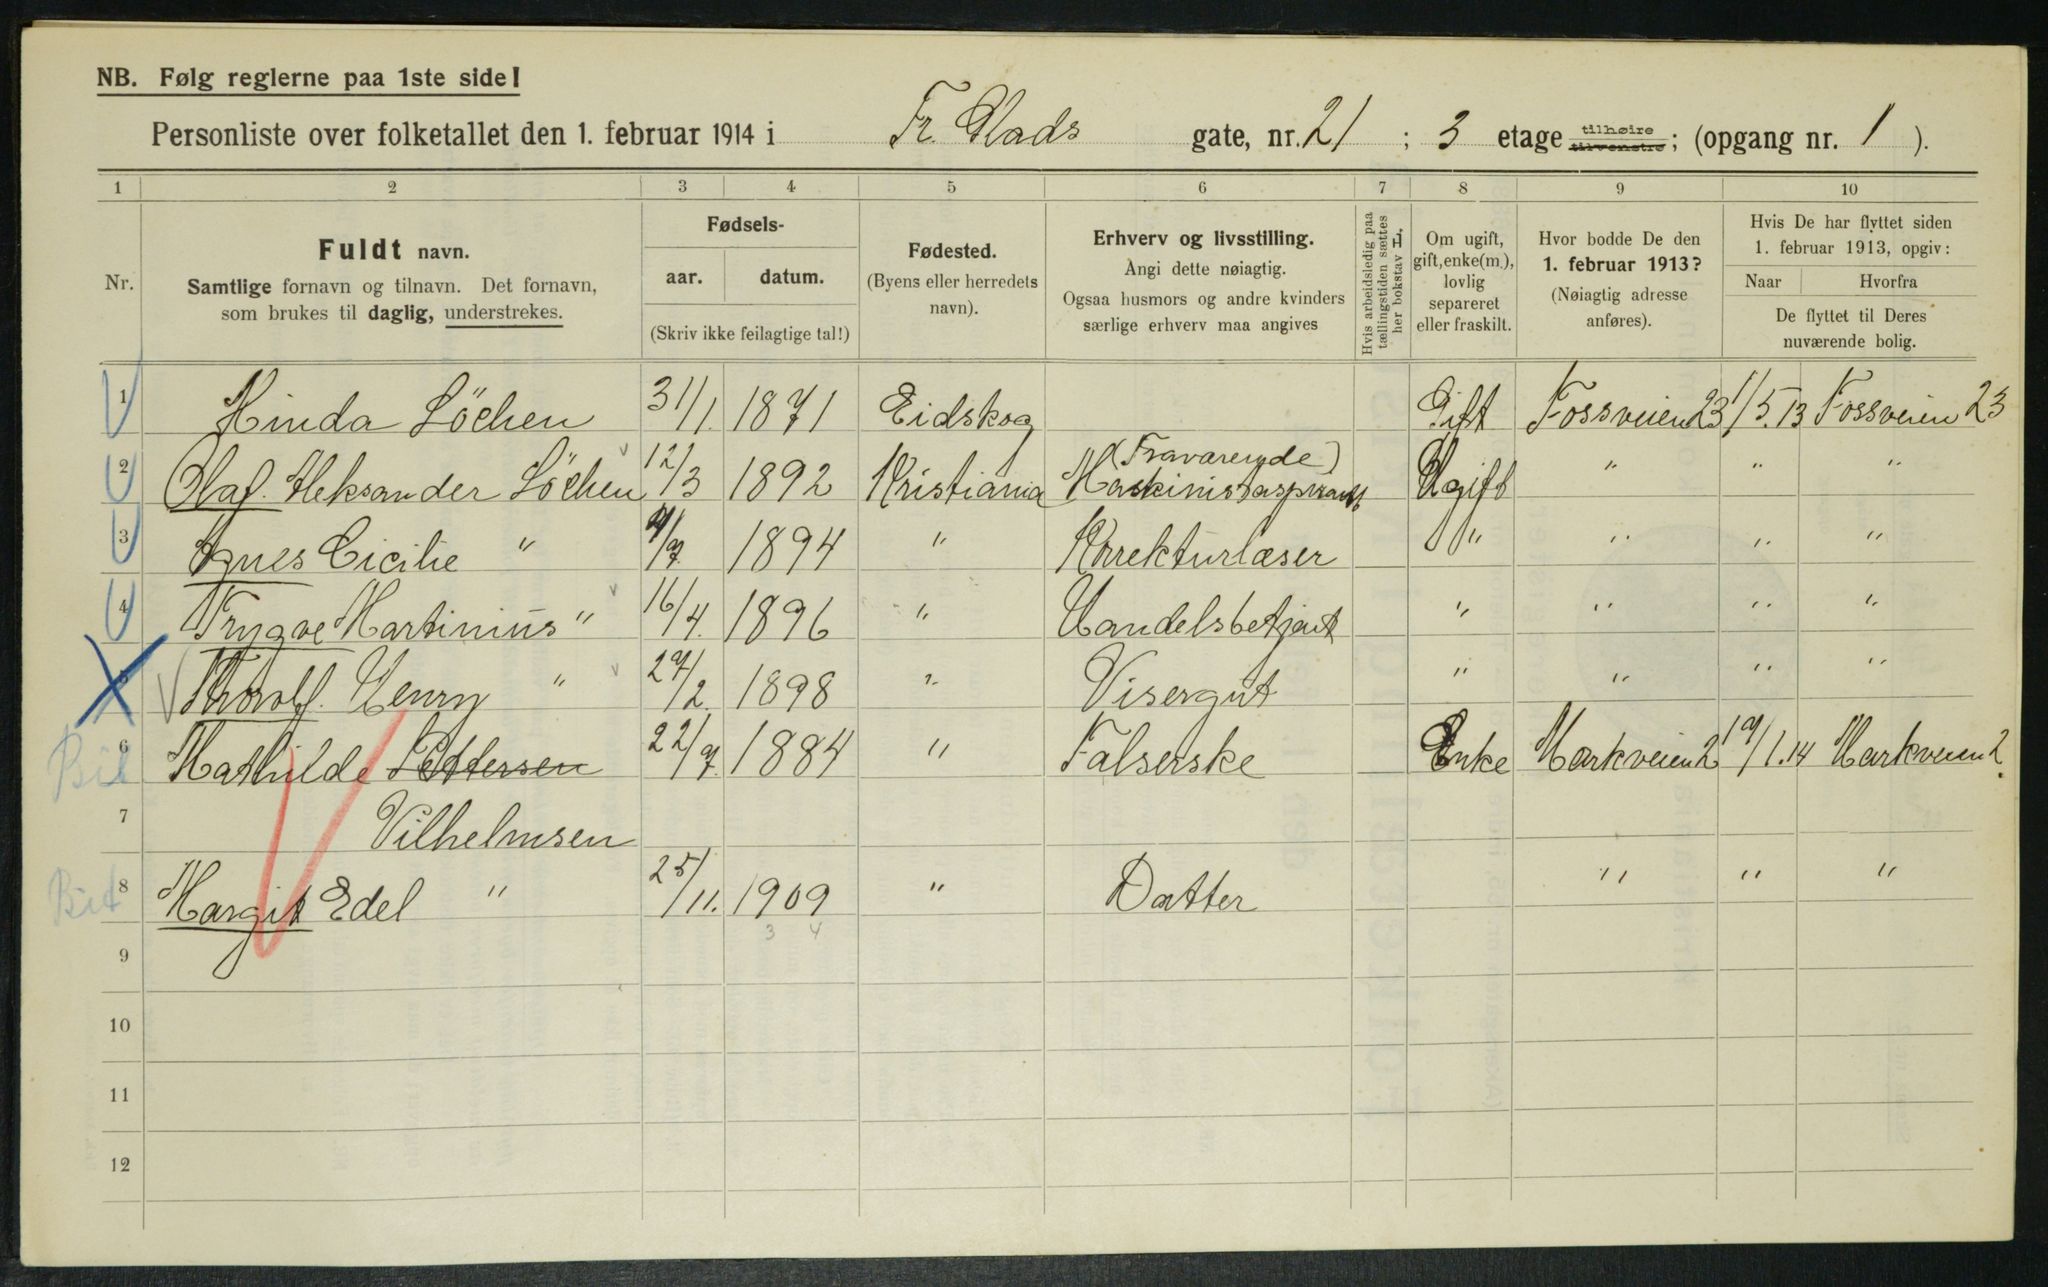 NB. Følg reglerne paa 1ste side!
Personliste over folketallet den 1. februar 1914 i Fr. Glads gate, nr. 21 ; 3 etage tilhøire tilvenstre ; (opgang nr. 1 ).
1 2 3 4 5 6 7 8 9 10
Nr.
Fuldt navn.
Samtlige fornavn og tilnavn. Det fornavn,
som brukes til daglig, understrekes.
Fødsels-
aar. datum.
(Skriv ikke feilagtige tal!)
Fødested.
(Byens eller herredets
navn).
Erhverv og livsstilling.
Angi dette nøiagtig.
Ogsaa husmors og andre kvinders
særlige erhverv maa angives
Hvis arbeidsledig paa
tællingstiden sættes
her bokstav L.
Om ugift,
gift, enke(m.),
lovlig
separeret
eller fraskilt.
Hvor bodde De den
1. februar 1913?
(Nøiagtig adresse
anføres).
Hvis De har flyttet siden
1. februar 1913, opgiv:
Naar Hvorfra
De flyttet til Deres
nuværende bolig.
1 Hinda Löchen 31/1. 1871 Eidskog Gift Fossveien 23 1/5. 13 Fossveien 23
(Fraværende)
2 Olaf. Aleksander Löchen 12/3 1892 Kristiania Maskinistaspirant Ugift " " "
3 Agnes Cicilie " 1894 " Korrekturlæser " " " "
4 Trygve Martinius " 16/4. 1896 " Handelsbetjent " " " "
5 Thorolf. Henry " 27/2. 1898 " Visergut " " " "
Bit 6 Mathilde Pettersen 22/7. 1884 " Falserske Enke Markveien 2 19/1. 14 Markveien 2.
7 Vilhelmsen
Bit 8 Margit Edel " 25/11. 1909 " Datter " " "
3 4
9
10
11
12